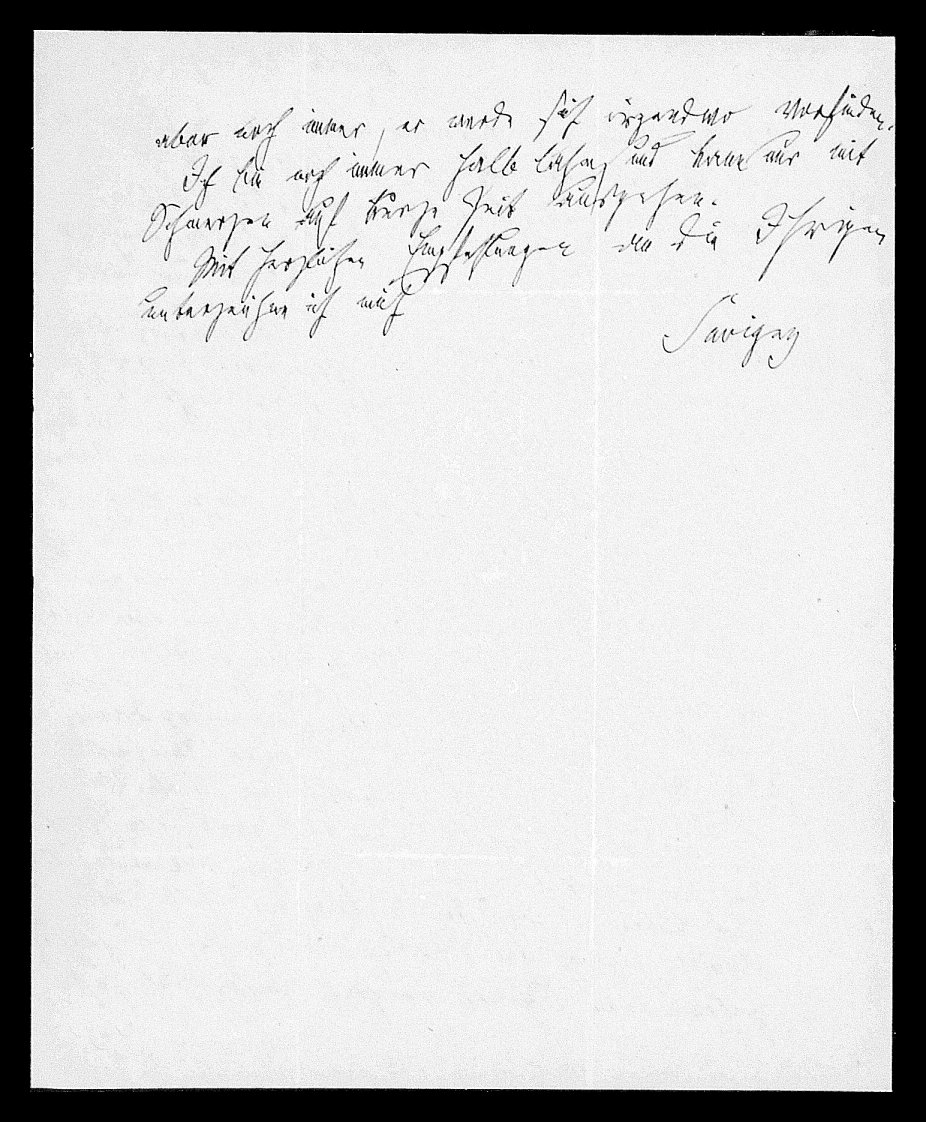 aber noch immer, er werde sich irgendwo vorfinden.
Ich bin noch immer halb lahm, und kann nur mit
Schmerzen auf kurze Zeit ausgehen.
Mit herzlichen Empfehlungen an die Ihrigen
unterzeichne ich mich
Savigny